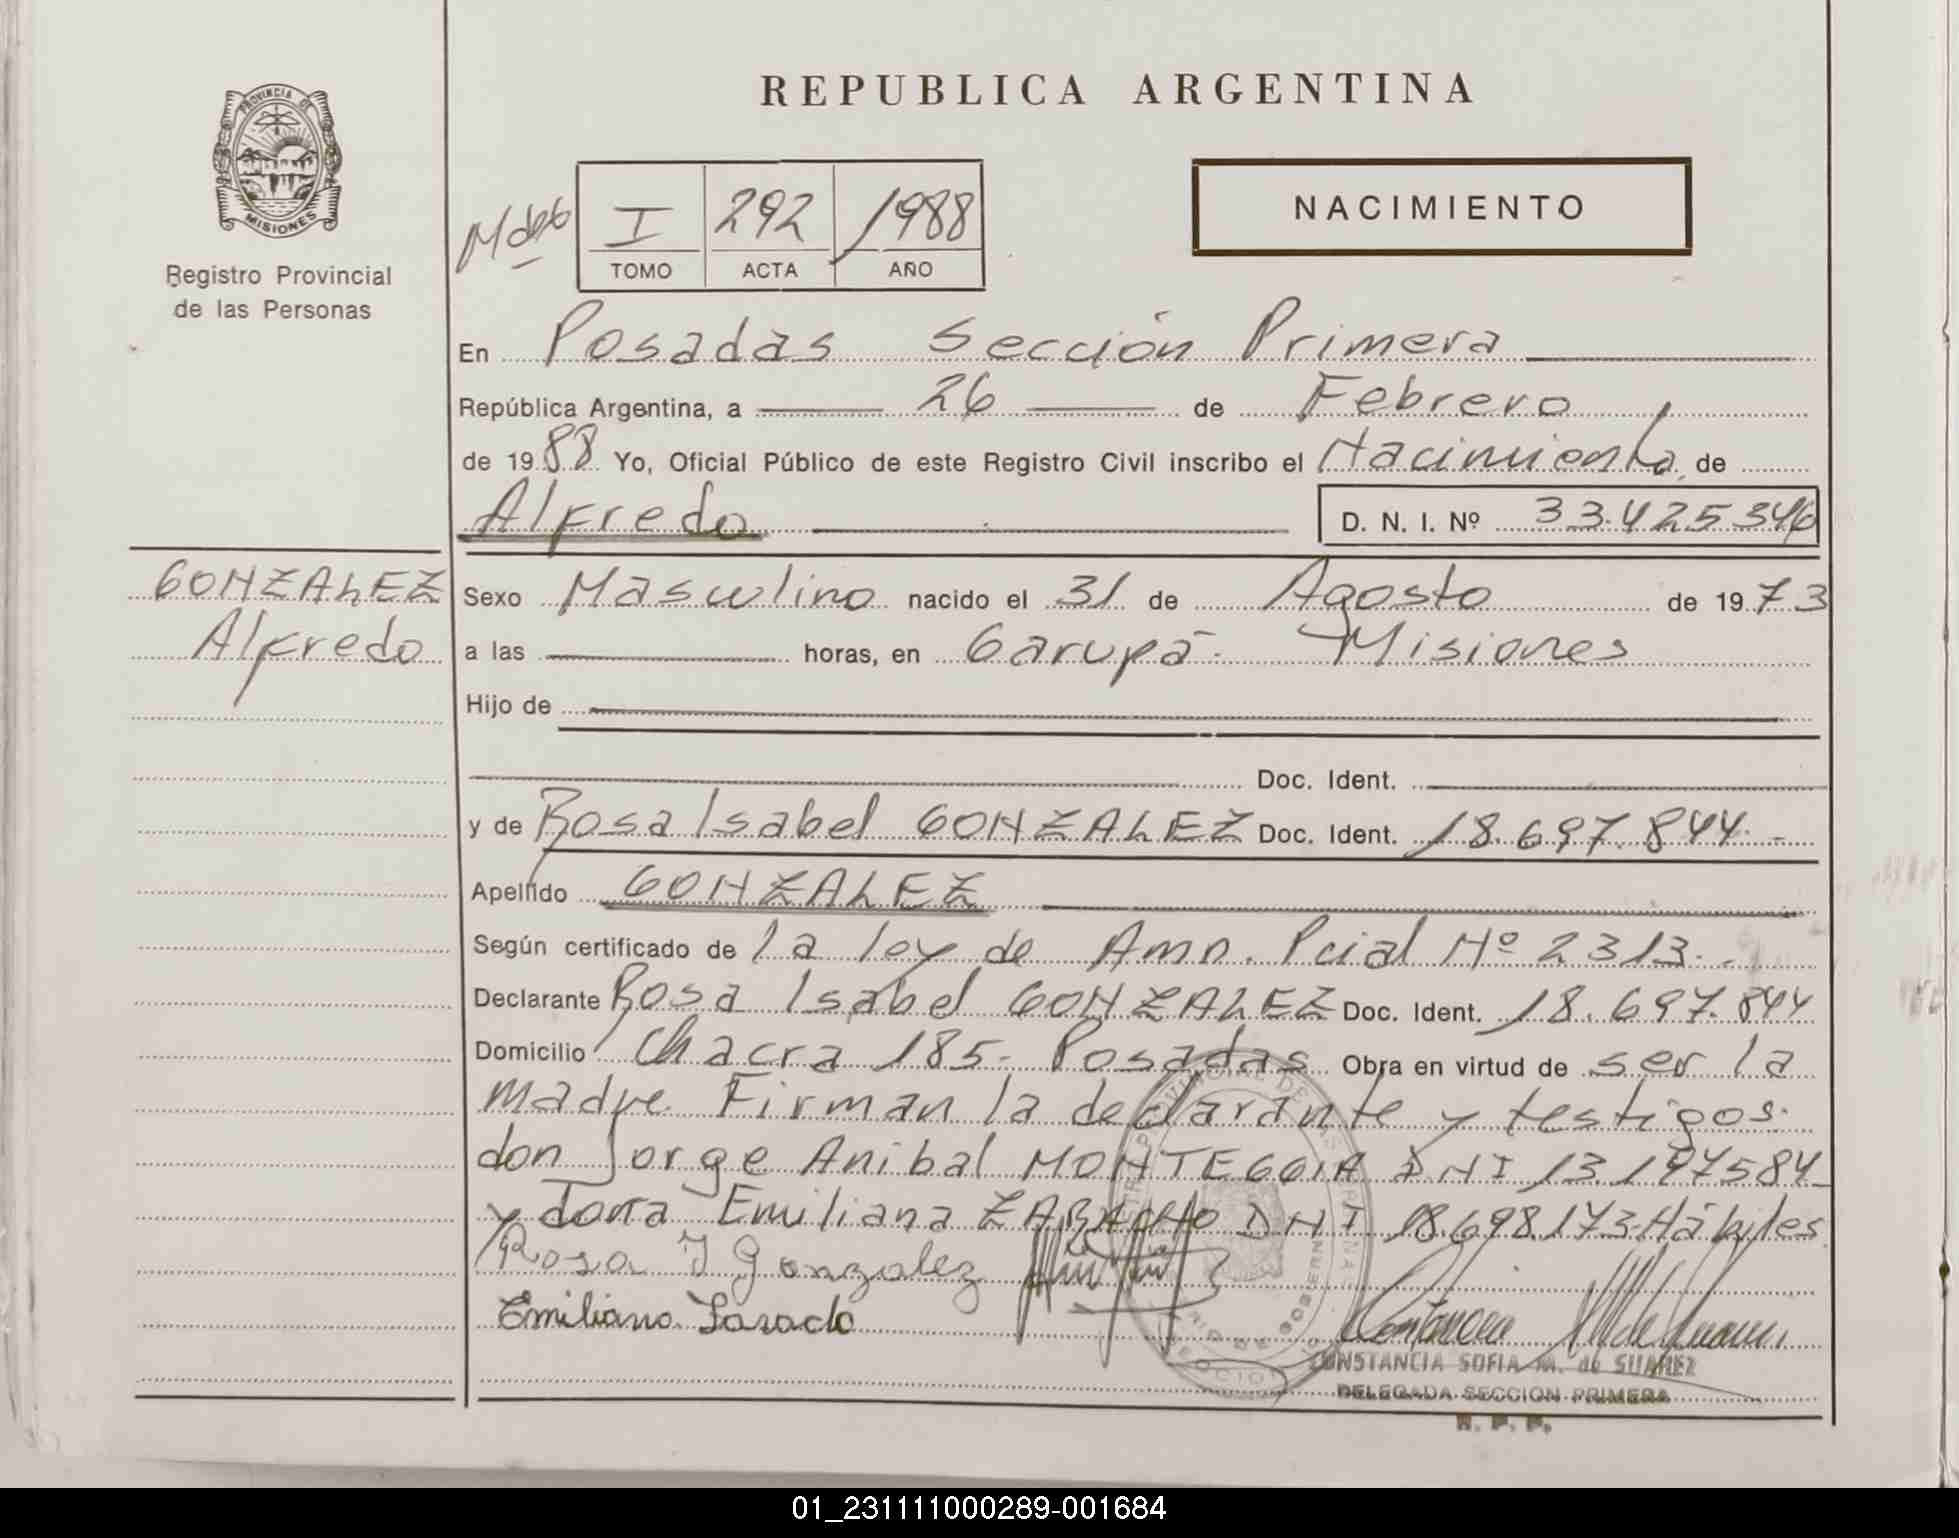 PROVINCIA DE
MISIONES
Registro Provincial
de las Personas
REPUBLICA ARGENTINA
I 292 1988
TOMO ACTA AÑO
NACIMIENTO
En Posadas Sección Primera
República Argentina, a 26 de Febrero
de 1988 Yo, Oficial Público de este Registro Civil inscribo el Nacimiento de
Alfredo D. N. I. Nº 33.425346
GONZALEZ
Alfredo
Sexo Masculino nacido el 31 de Agosto de 1973
a las horas, en Garupá. Misiones
Hijo de
Doc. Ident.
y de Rosa Isabel GONZALEZ Doc. Ident. 18.697.844.-
Apellido GONZALEZ
Según certificado de la ley de Amn. Pcial Nº 2313.-
Declarante Rosa Isabel GONZALEZ Doc. Ident. 18.697.844
Domicilio Chacra 185- Posadas Obra en virtud de ser la
madre. Firman la declarante y testigos.
don Jorge Anibal MONTEGGIA DNI 13.197584
y doña Emiliana ZARACHO DNI 18.698.173-Hábiles
Rosa I Gonzalez
Emiliana
CONSTANCIA SOFIA M. de SUAREZ
DELEGADA SECCION PRIMERA
R. P. P.
01_231111000289-001684